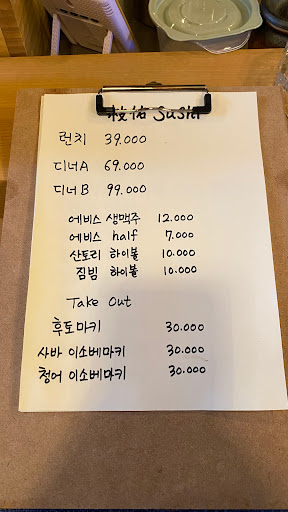 Sushi
런치 39.000
디너A 69.000
디너B 99.000
에비스 생맥주 12.000
에비스 half 7.000
산토리 하이볼 10.000
짐빔 하이볼 10.000
Take Out
후토마키 30.000
사바 이소베마키 30.000
청어 이소베마키 30.000